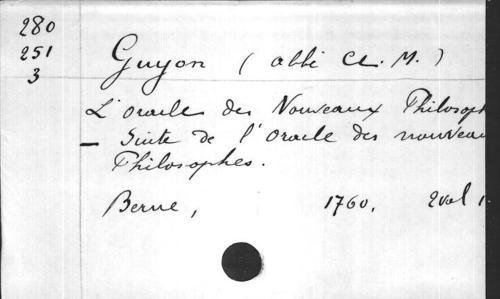 280
251
3
Guyon (abbé Cl. M.)
L'oracle des Nouveaux Philosoph
— Suite de l'oracle des nouveau
Philosophes.
Berne, 1760, 2 vol 1